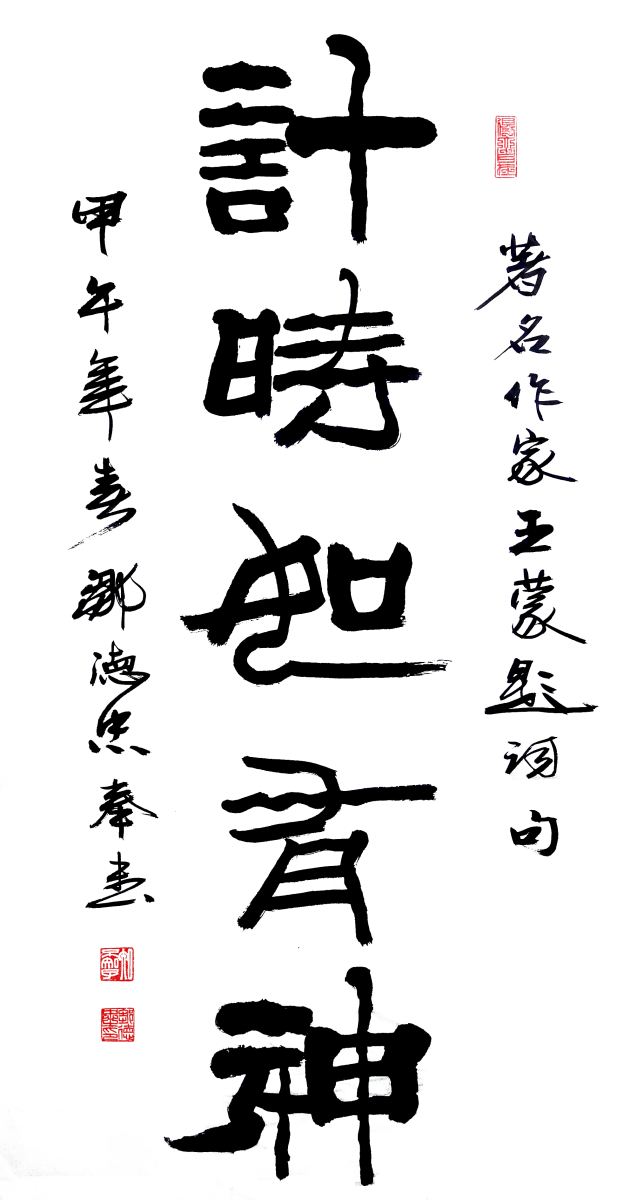 著名作家王蒙题词句
計時如有神
甲午年春鄒德忠奉書